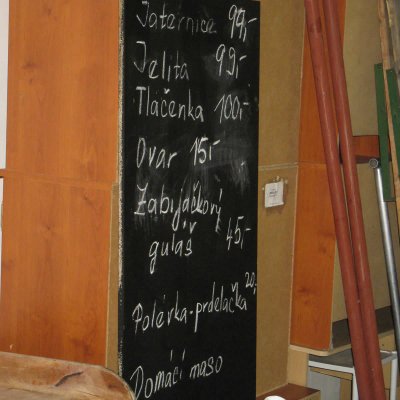 Jaternice 99,-
Jelita 99,-
Tlačenka 100,-
Ovar 15,-
Zabijačkový
guláš 45,-
Polévka-prdelačka 20,-
Domácí maso